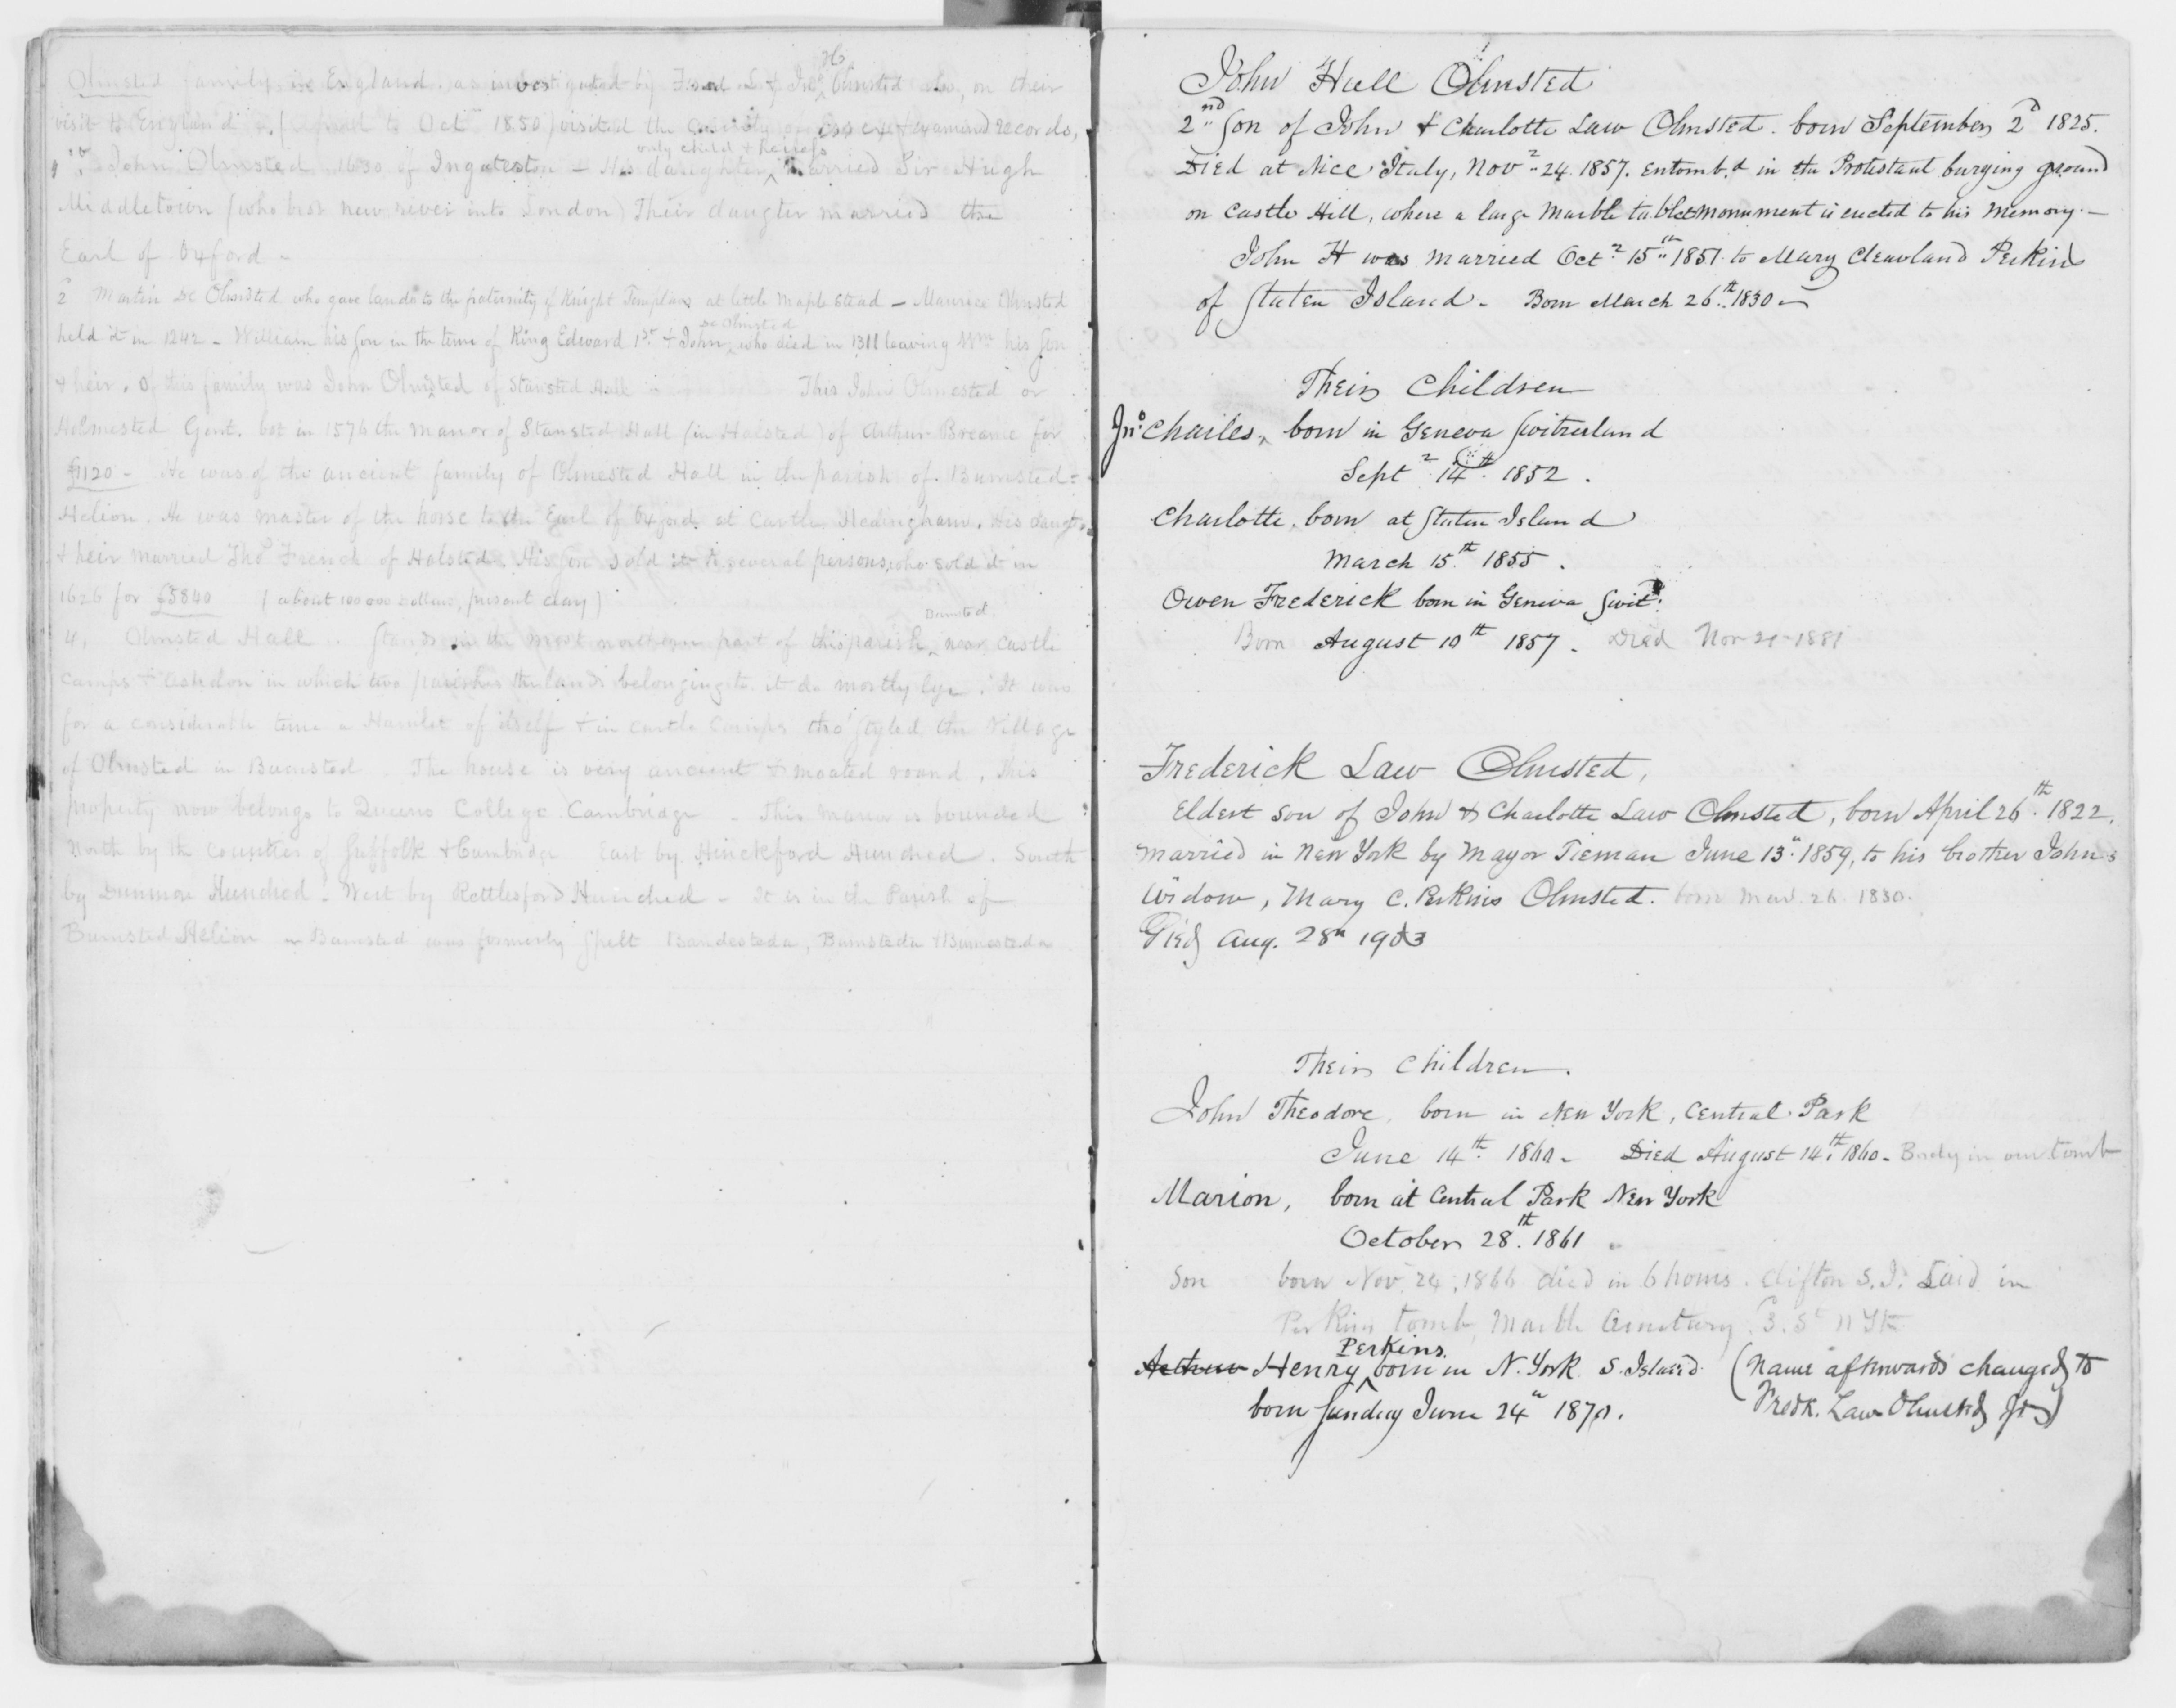 Olmsted family in England as investigated by Fred. L & Jno H Olmsted who, on their
visit to England to Oct 1850 visited the County of Essex & examined records,
1st John Olmsted 1630 of Ingateston - His daughter only child & heiress married Sir Hugh
Middletown (who bro't new river into London) Their daughter married the
Earl of Oxford -
2 Martin De Olmsted who gave lands to the fraternity of Knight Templars at little Maple stead - Maurice Olmsted
held it in 1242 - William his son in the time of King Edward 1st & John de Olmsted who died in 1311 leaving Wm his son
& heir. Of this family was John Olmsted of Stansted Hall This John Olmested or
Holmested Gent. bot in 1576 the manor of Stansted Hall (in Halsted) of Arthur Breame for
£1120 - He was of the ancient family of Olmested Hall in the parish of Bumsted-
Helion. He was master of the horse to the Earl of Oxford at Castle Hedingham. His daughter
& heir married Thos French of Halsted. His son sold it to several persons, who sold it in
1626 for £5840 (about 100 000 dollars, present day)
4, Olmsted Hall. Stands in the most northern part of this parish Bumsted near Castle
Camps & Ashdon in which two parishes the lands belonging to it do mostly lye. It was
for a considerable time a Hamlet of itself & in Castle Camps tho' styled, the Village
of Olmsted in Bumsted. The house is very ancient & moated round, this
property now belongs to Queens College Cambridge - This manor is bounded
North by the counties of Suffolk & Cambridge East by Hinckford Hundred. South
by Dunmow Hundred - West by Rottlesford Hundred - It is in the Parish of
Bumsted Helion - Bumsted was formerly spelt Bandesteda, Bumsteda & Bumesteda
John Hull Olmsted
2nd Son of John & Charlotte Law Olmsted. born September 2d 1825.
Died at Nice Italy, Novr 24. 1857. entomb.d in the Protestant burying ground
on Castle Hill, where a large marble tablet monument is erected to his memory. -
John H was married Octr 15th 1851 to Mary Cleavland Perkins
of Staten Island - Born March 26th 1830 -
Their Children
Jno Charles, born in Geneva Switzerland
Septr 14th 1852.
Charlotte, born at Staten Island
March 15th 1855.
Owen Frederick born in Geneva Switd.
Born August 10th 1857. Died Nov 21-1881
Frederick Law Olmsted,
Eldest son of John & Charlotte Law Olmsted, born April 26th 1822.
married in New York by Mayor Tieman June 13" 1859, to his brother John's
widow, Mary C. Perkins Olmsted. born Mar. 26 1830.
Died Aug. 28th 1903
Their Children.
John Theodore, born in New York, Central Park
June 14th 1860 - Died August 14th 1860 - Body in our tomb
Marion, born at Central Park New York
October 28th 1861
Son born Nov. 24, 1866 died in 6 hours. Clifton S.I. Laid in
Perkins tomb, Marble Cemetery 3. St N Yk
Arthur Henry Perkins born in N. York S. Island (Name afterwards changed to
born Sunday June 24th 1870. Fredk. Law Olmsted Jr)